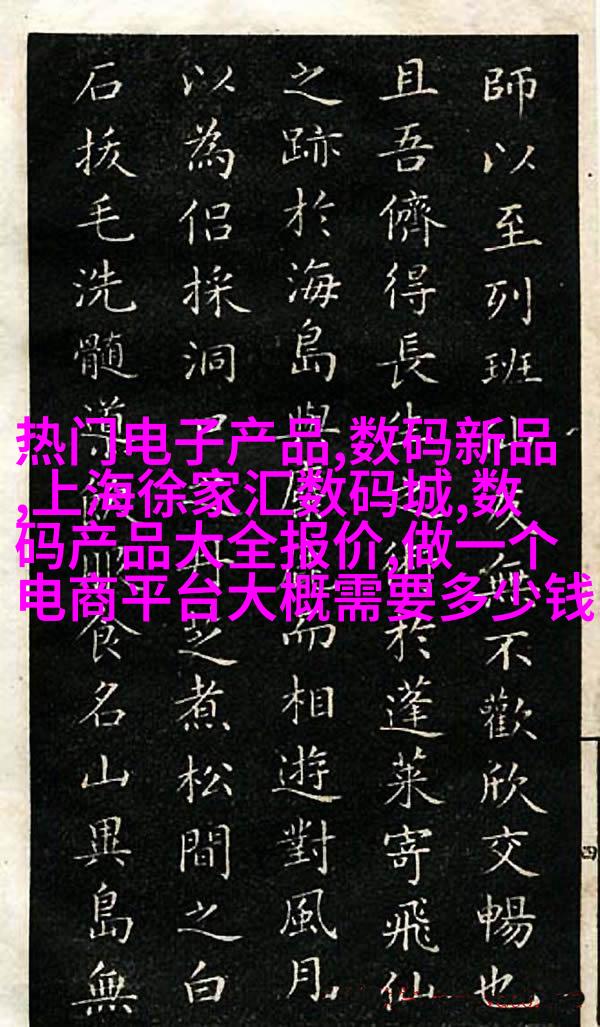 師以至列班無不歡欣交暢也
且吾儕得長生於蓬莱寄飛仙
之跡於海島與而相遊對風月
以為侣採洞芝煮松間之白
石拔毛洗髓導食名山異島無
热门电子产品,数码新品
,上海徐家汇数码城,数
码产品大全报价,做一个
电商平台大概需要多少钱